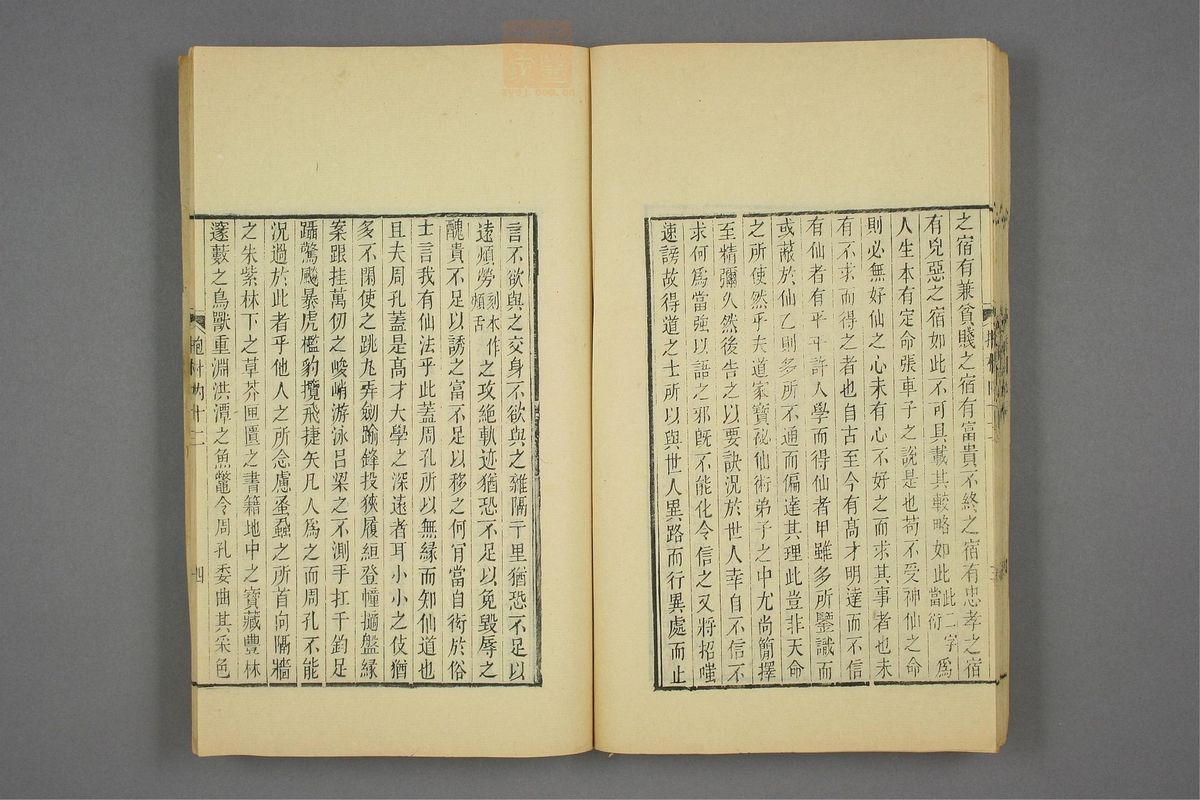 之宿有兼貧賤之宿有富貴不終之宿有忠孝之宿
有兇惡之宿如此不可具載其較略如此此二字當衍爲
人生本有定命張車子之說是也苟不受神仙之命
則必無好仙之心未有心不好之而求其事者也未
有不求而得之者也自古至今有高才明達而不信
有仙者有平平許人學而得仙者甲雖多所鑒識而
或蔽於仙乙則多所不通而偏達其理此豈非天命
之所使然乎夫道家寶祕仙術弟子之中尤尚簡擇
至精彌久然後告之以要訣況於世人幸自不信不
求何爲當強以語之邪旣不能化令信之又將招嗤
速謗故得道之士所以與世人異路而行異處而止
言不欲與之交身不欲與之雜隔千里猶恐不足以
遠煩勞刻本作煩舌之攻絕軌迹猶恐不足以免毀辱之
醜貴不足以誘之富不足以移之何肎當自衒於俗
士言我有仙法乎此蓋周孔所以無緣而知仙道也
且夫周孔蓋是高才大學之深遠者耳小小之伎猶
多不閑使之跳丸弄劒踰鋒投狹履絙登幢擿盤緣
案跟挂萬仞之峻峭游泳呂梁之不測手扛千鈞足
躡驚飇暴虎檻豹攬飛捷矢凡人爲之而周孔不能
況過於此者乎他人之所念慮蚤蝨之所首向隔牆
之朱紫林下之草芥匣匱之書籍地中之寶藏豐林
邃藪之鳥獸重淵洪潭之魚鼈令周孔委曲其采色
抱朴內十二
四